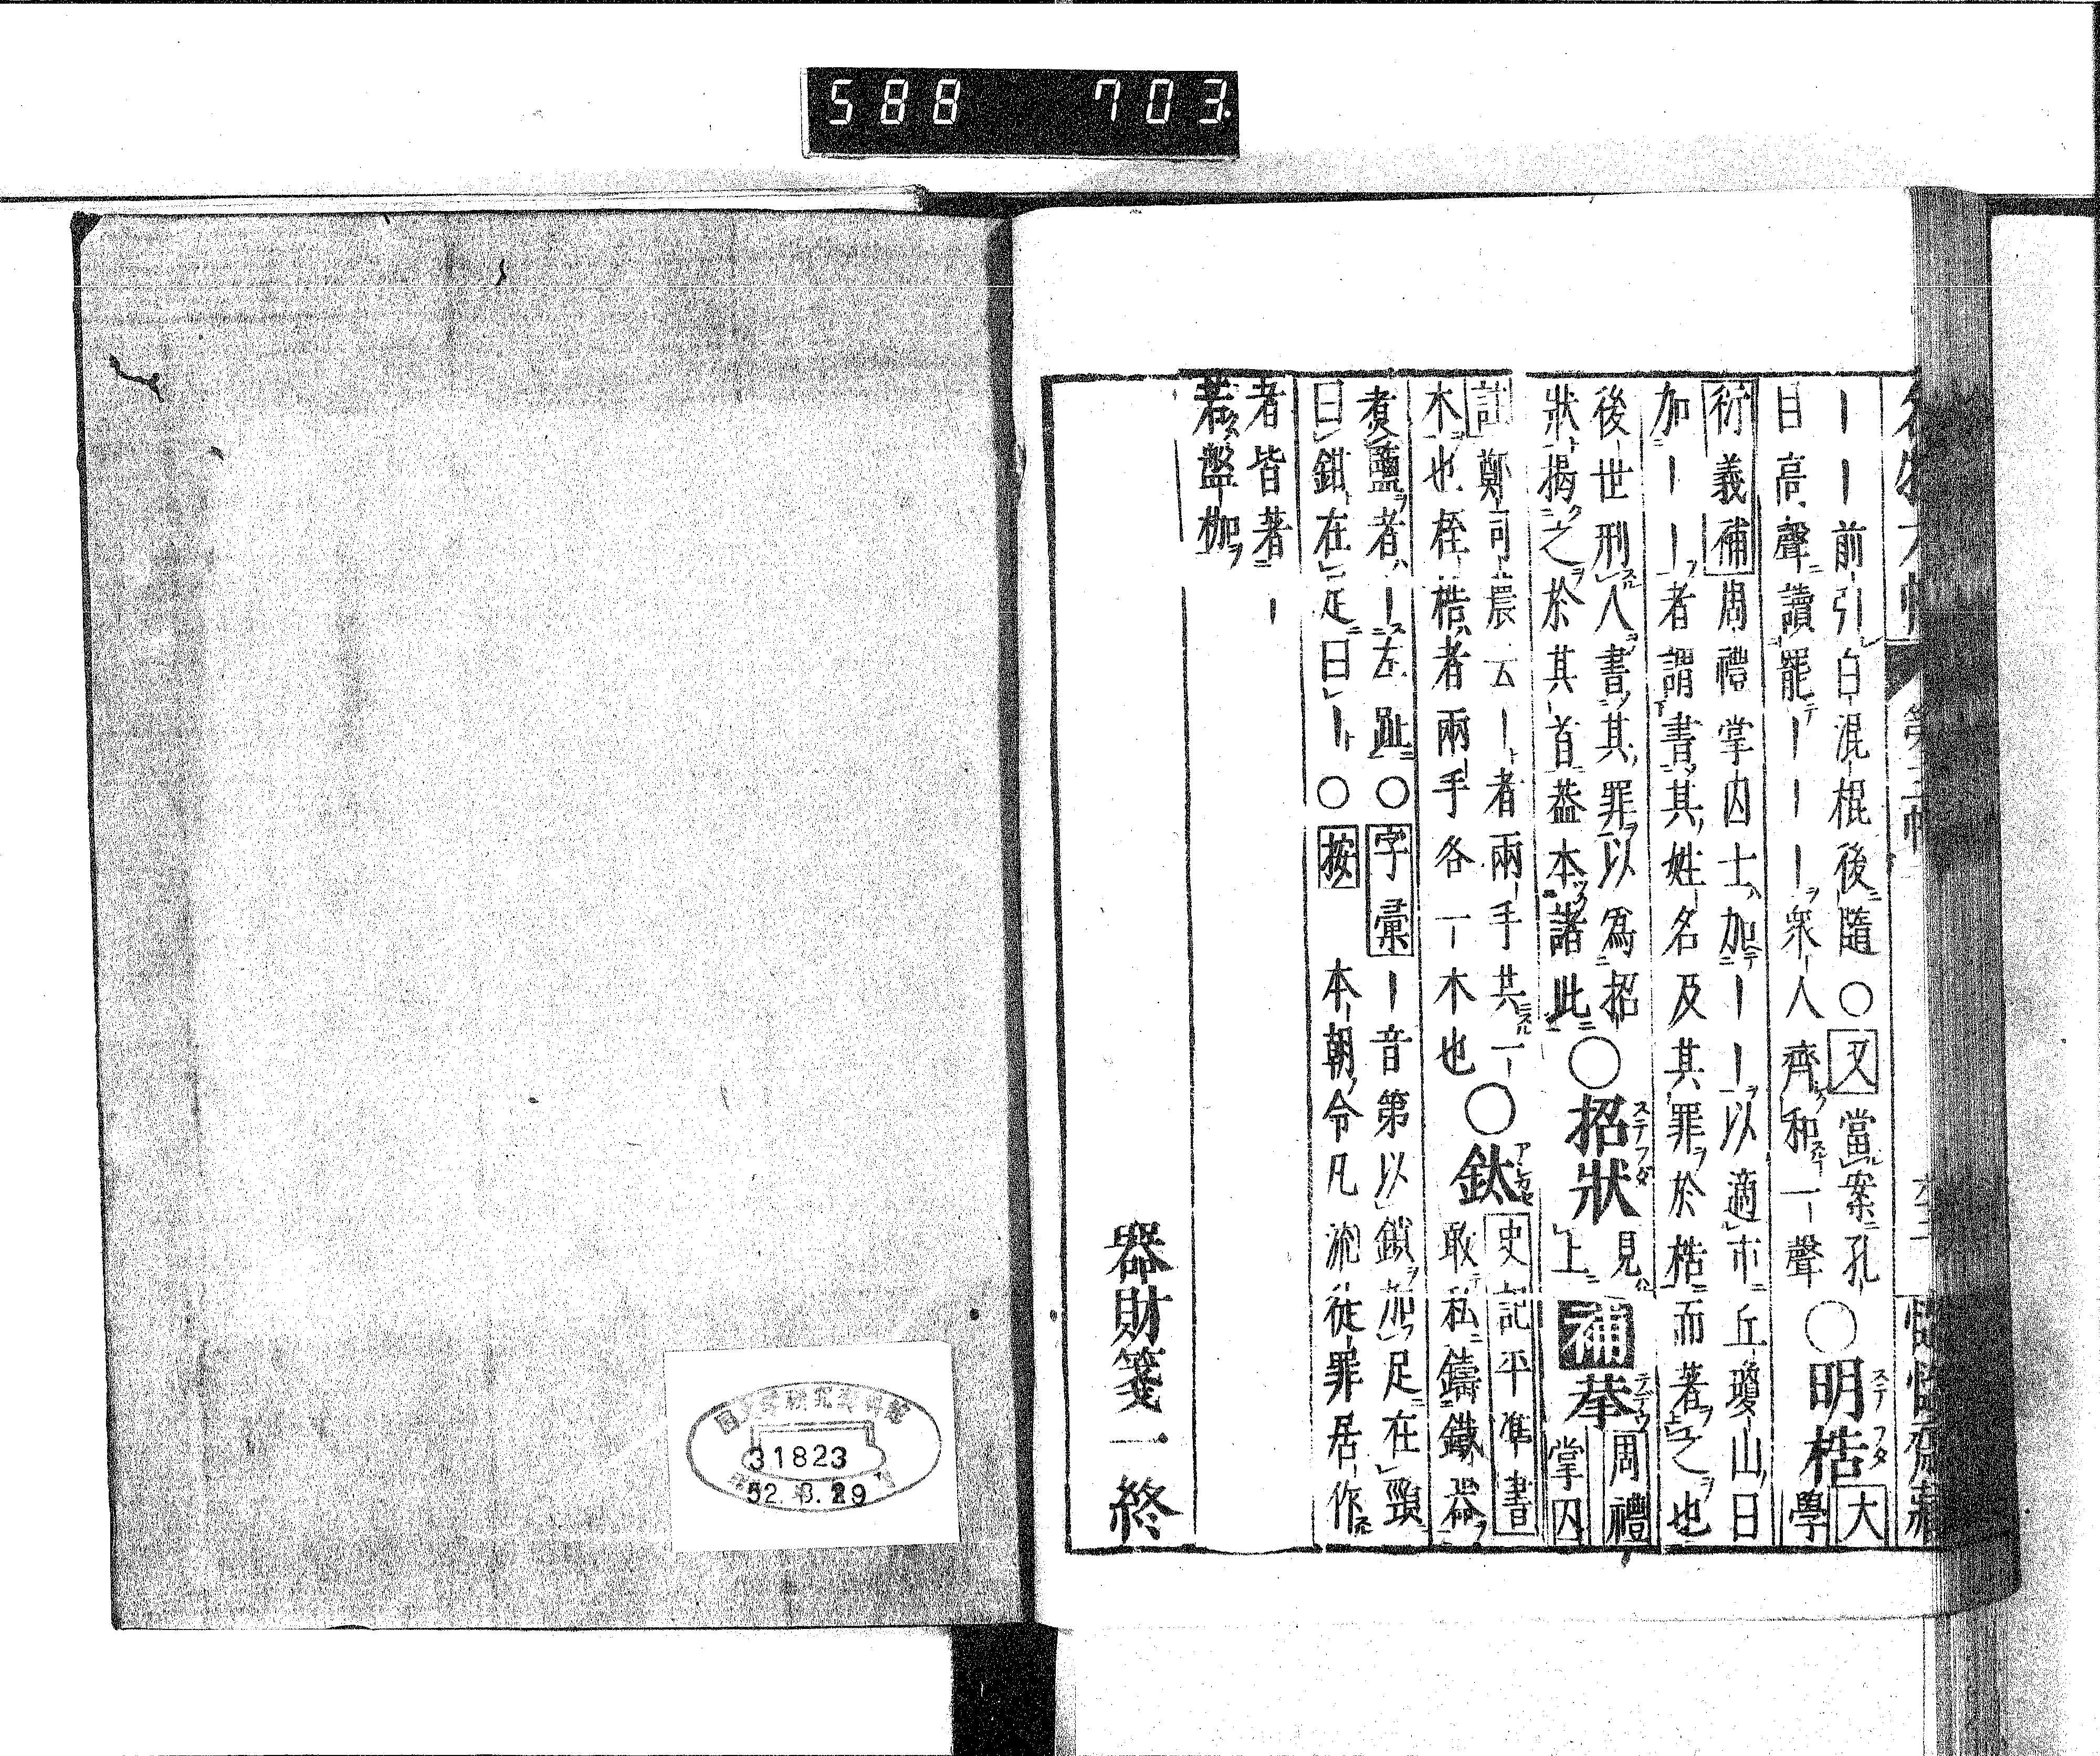 588 703
丨丨前引白混棍後隨○又當案孔
目高聲讀罷丨丨丨衆人齊和一聲
○明梏
ステフタ
大學
衍義補周禮掌囚士加丨丨以適市丘瓊山曰
加丨丨者謂書其姓名及其罪於梏而著之也
後世刑人書其罪以爲招
狀揭之於其首葢本諸此
○招狀
ステフダ
見上
補拲
テガテウ
周禮掌囚
註鄭司農云丨者兩手共一
木也桎梏者兩手各一木也
○釱
史記平準書
敢私鑄鐵器
煑鹽者丨左趾○字彙丨音第以鎖加足在頸
曰鉗在足曰丨○按 本朝令凢流徒罪居作
者皆著丨
若盤枷
器財箋一終
31823
52.8.29